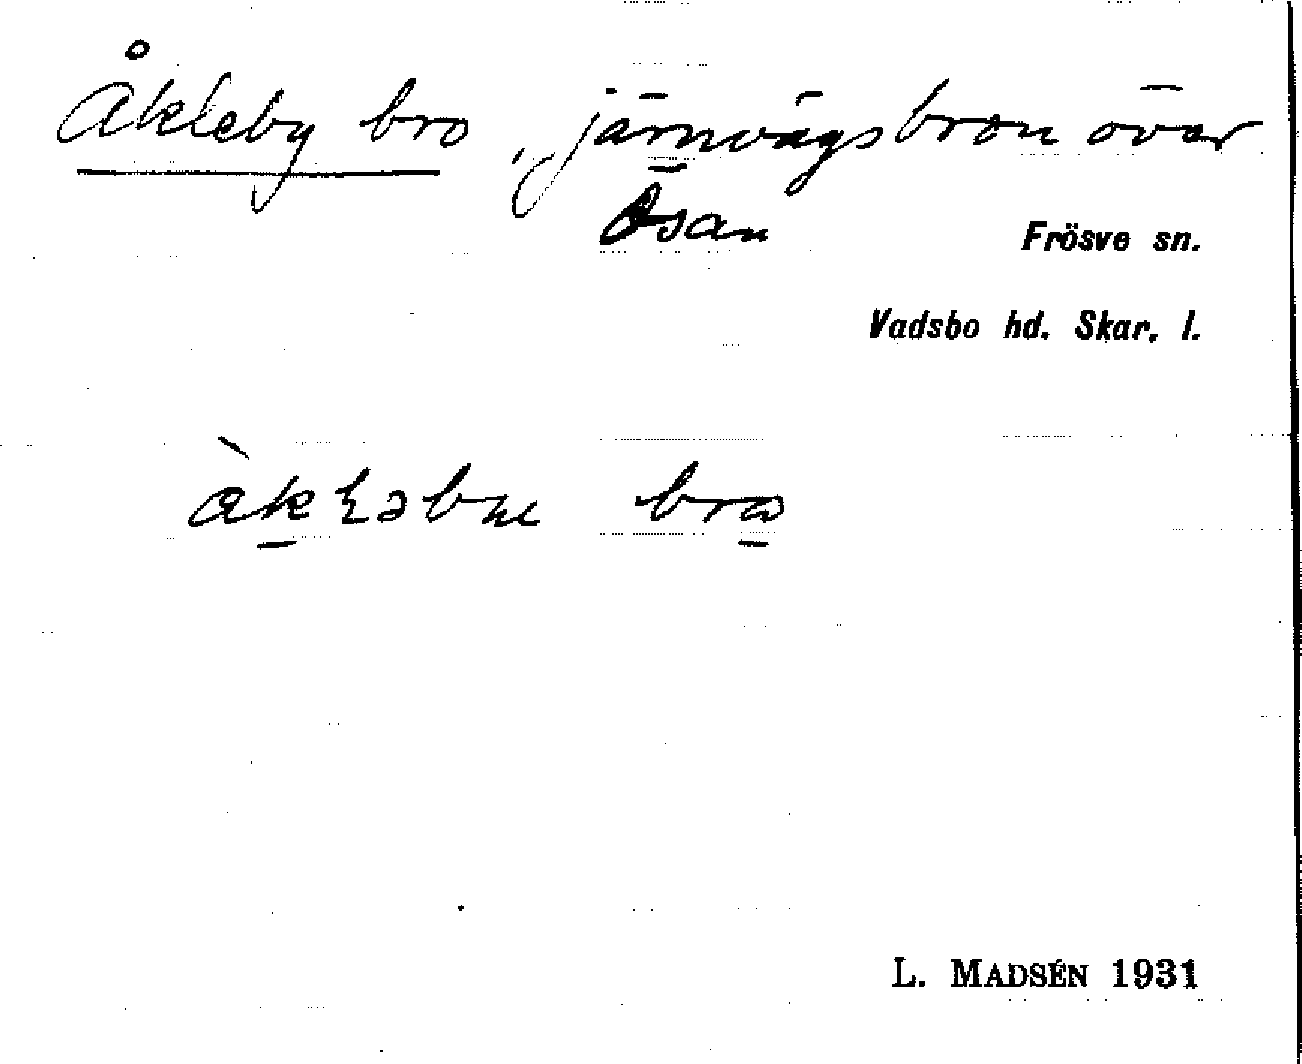 Åkleby bro, järnvägsbron över
Ösan
Frösve sn.
Vadsbo hd. Skar. l.
bro
L. MADSÉN 1931